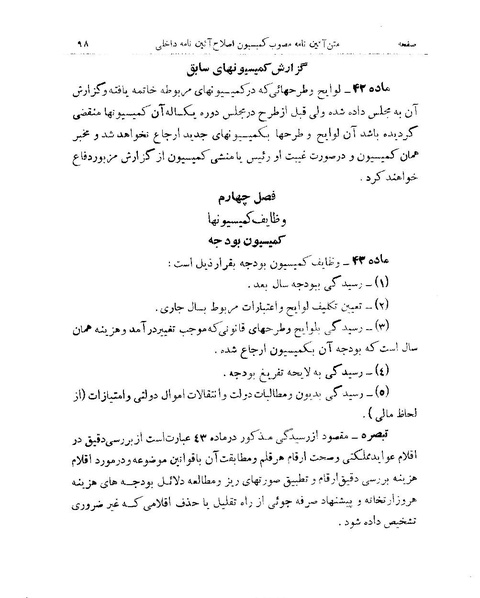 صفحه متن آئین نامه مصوب کمیسیون اصلاح آئین نامه داخلی ۹۸
گزارش کمیسیونهای سابق
ماده ۴۲ ـ لوایح وطرحهائی که درکمیسیونهای مربوطه خاتمه یافته وگزارش
آن به مجلس داده شده ولی قبل ازطرح درمجلس دوره یکساله آن کمیسیونها منقضی
گردیده باشد آن لوایح و طرحها بکمیسیونهای جدید ارجاع نخواهد شد و مخبر
همان کمیسیون و درصورت غیبت او رئیس یامنشی کمیسیون از گزارش مزبوردفاع
خواهند کرد .
فصل چهارم
وظایف کمیسیونها
کمیسیون بودجه
ماده ۴۳ ـ وظایف کمیسیون بودجه بقرارذیل است :
(۱) ـ رسیدگی ببودجه سال بعد .
(۲) ـ تعیین تکلیف لوایح و اعتبارات مربوط بسال جاری .
(۳) ـ رسیدگی بلوایح وطرحهای قانونی که موجب تغییردرآمد وهزینه همان
سال است که بودجه آن بکمیسیون ارجاع شده .
(٤) ـ رسیدگی به لایحه تفریغ بودجه .
(٥) ـ رسیدگی بدیون ومطالبات دولت وانتقالات اموال دولتی وامتیازات (از
لحاظ مالی ) .
تبصره ـ مقصود ازرسیدگی مذکور درماده ٤٣ عبارت است از بررسی دقیق در
اقلام عوایدمملکتی وصحت ارقام هرقلم ومطابقت آن باقوانین موضوعه ودرمورد اقلام
هزینه بررسی دقیق ارقام و تطبیق صورتهای ریز ومطالعه دلائل بودجه های هزینه
هروزارتخانه و پیشنهاد صرفه جوئی از راه تقلیل یا حذف اقلامی که غیر ضروری
تشخیص داده شود .